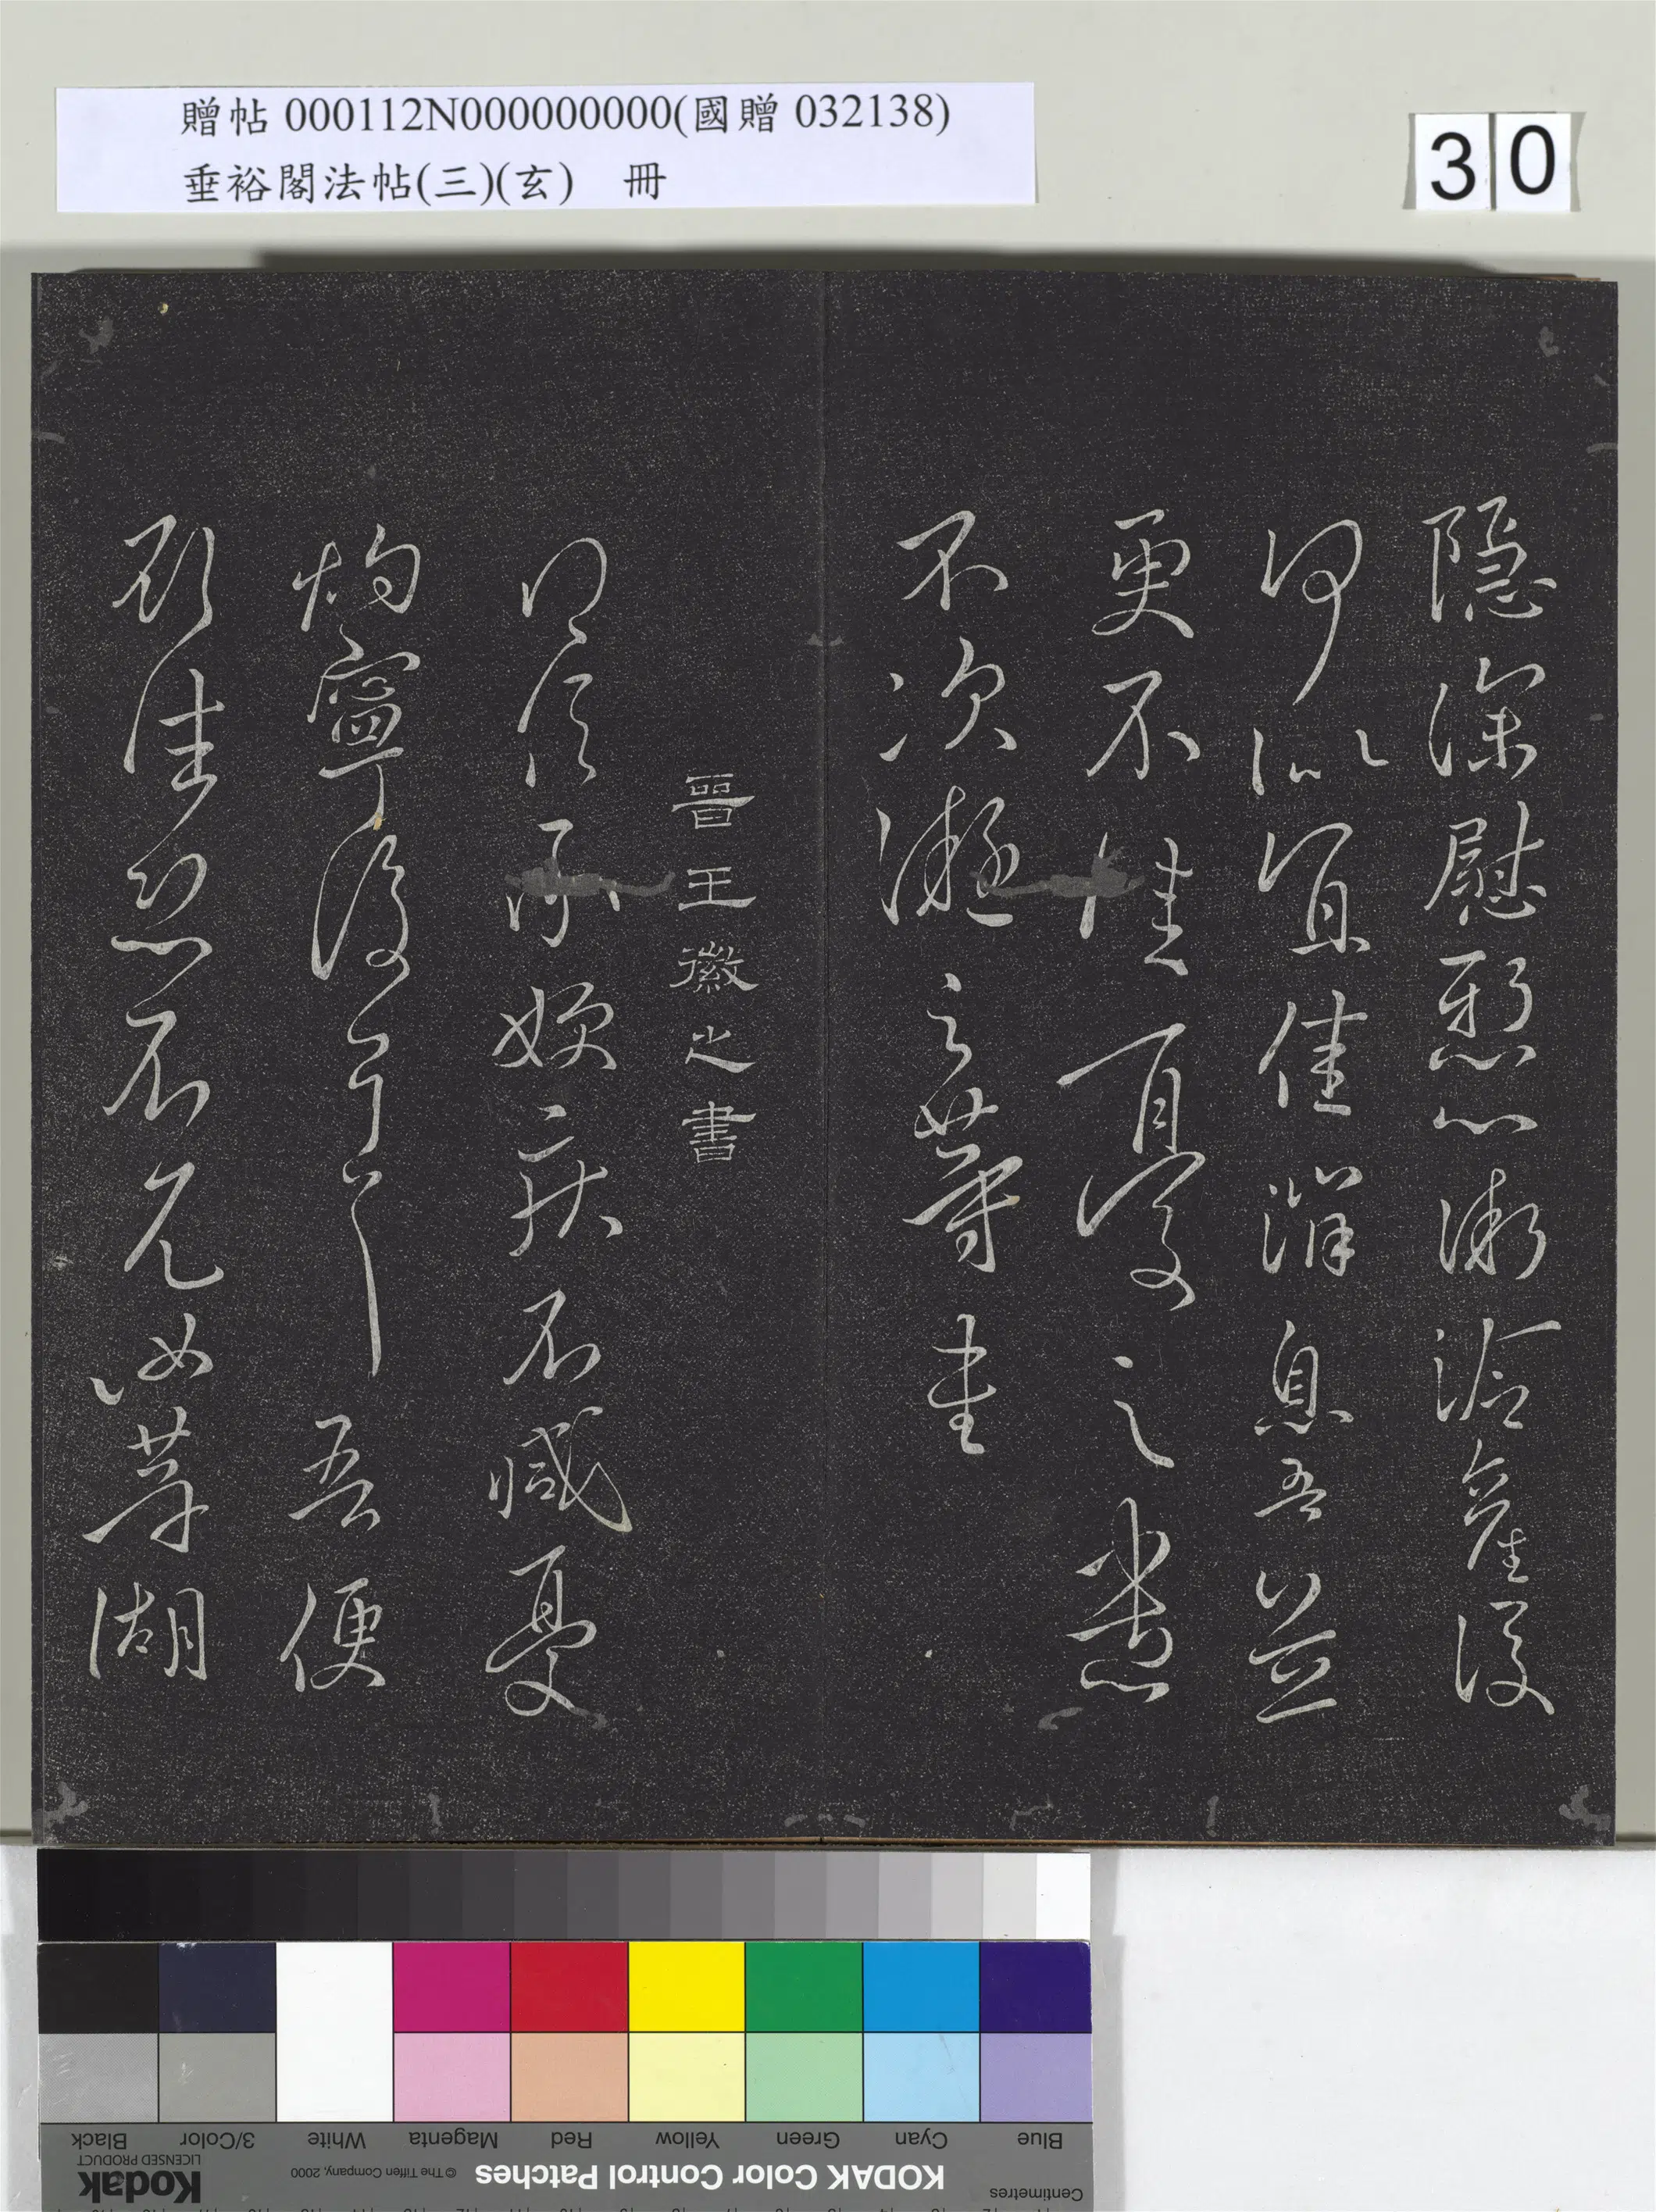 贈帖 000112N000000000(國贈 032138)
垂裕閣法帖(三)(玄) 冊
30
隱深慰懸心漸冷產後
何似宜佳消息吾並
更不佳憂之愁
不次凝之等書
晉王徽之書
信承嫂疾不減憂
灼寧復可言吾便
欲往恐不見汝等湖
Centimetres
KODAK Color Control Patches
© The Tiffen Company, 2000
Kodak
LICENSED PRODUCT
Blue Cyan Green Yellow Red Magenta White 3/Color Black